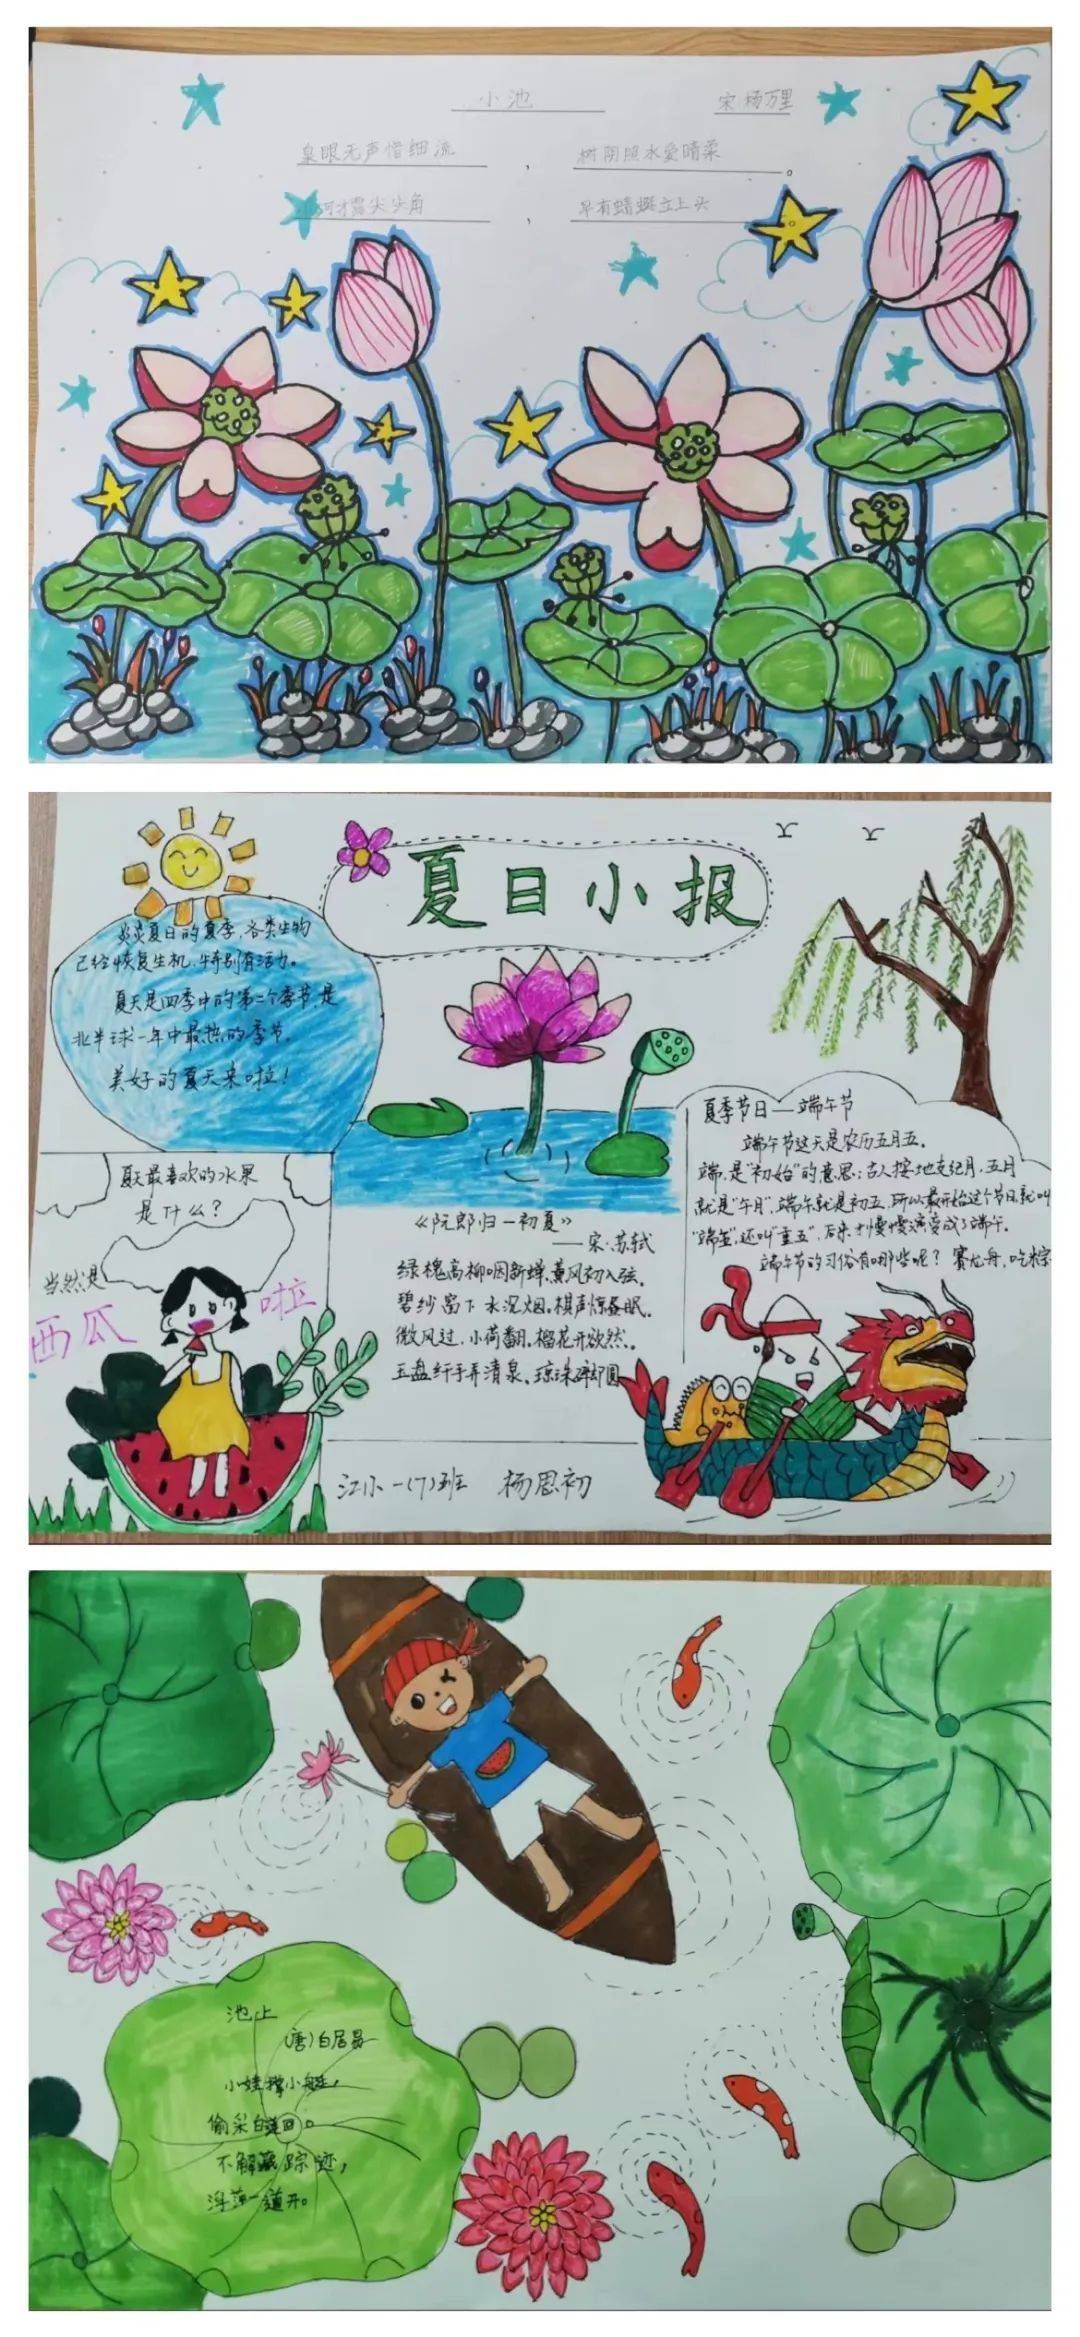 小池
宋 杨万里
泉眼无声惜细流, 树阴照水爱晴柔。
小河才露尖尖角, 早有蜻蜓立上头
夏日小报
炎炎夏日的夏季,各类生物
已经恢复生机,特别有活力。
夏天是四季中的第二个季节,是
北半球一年中最热的季节。
美好的夏天来啦!
夏天最喜欢的水果
是什么?
当然是
西瓜 啦
《阮郎归一初夏》
——宋·苏轼
绿槐高柳咽新蝉,薰风初入弦。
碧纱窗下水沉烟。棋声惊昼眠。
微风过,小荷翻,榴花开欲然。
玉盆纤手弄清泉。琼珠碎却圆
夏季节日——端午节
端午节这天是农历五月五。
端,是“初始”的意思;古人按地支纪月,五月
就是“午月”,端午就是初五,所以最开始这个节日就叫
“端五”,还叫“重五”,后来才慢慢演变成了端午。
端午节的习俗有哪些呢?赛龙舟,吃粽
江小一(7)班 杨思初
池上
(唐)白居易
小娃撑小艇,
偷采白莲回。
不解藏踪迹,
浮萍一道开。